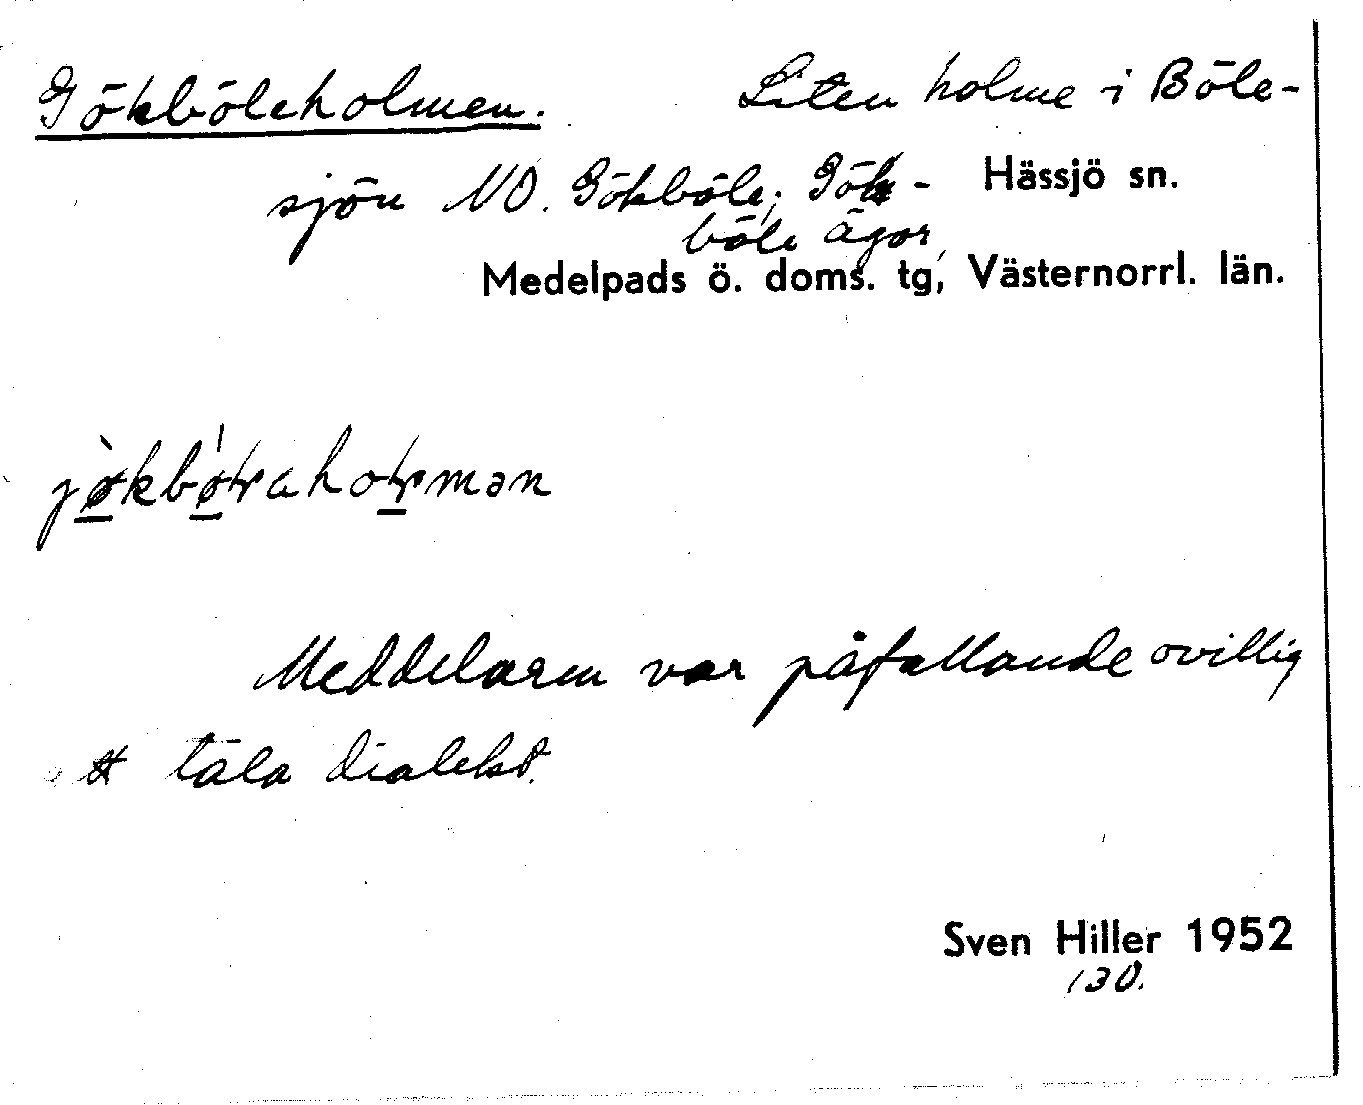 Gökböleholmen. Liten holme i Böle-
sjön NO. Gökböle; Gök- Hässjö sn.
böle ägor,
Medelpads ö. doms. tg, Västernorrl. län.
Meddelaren var påfallande ovillig
att tala dialekt.
Sven Hiller 1952
130.